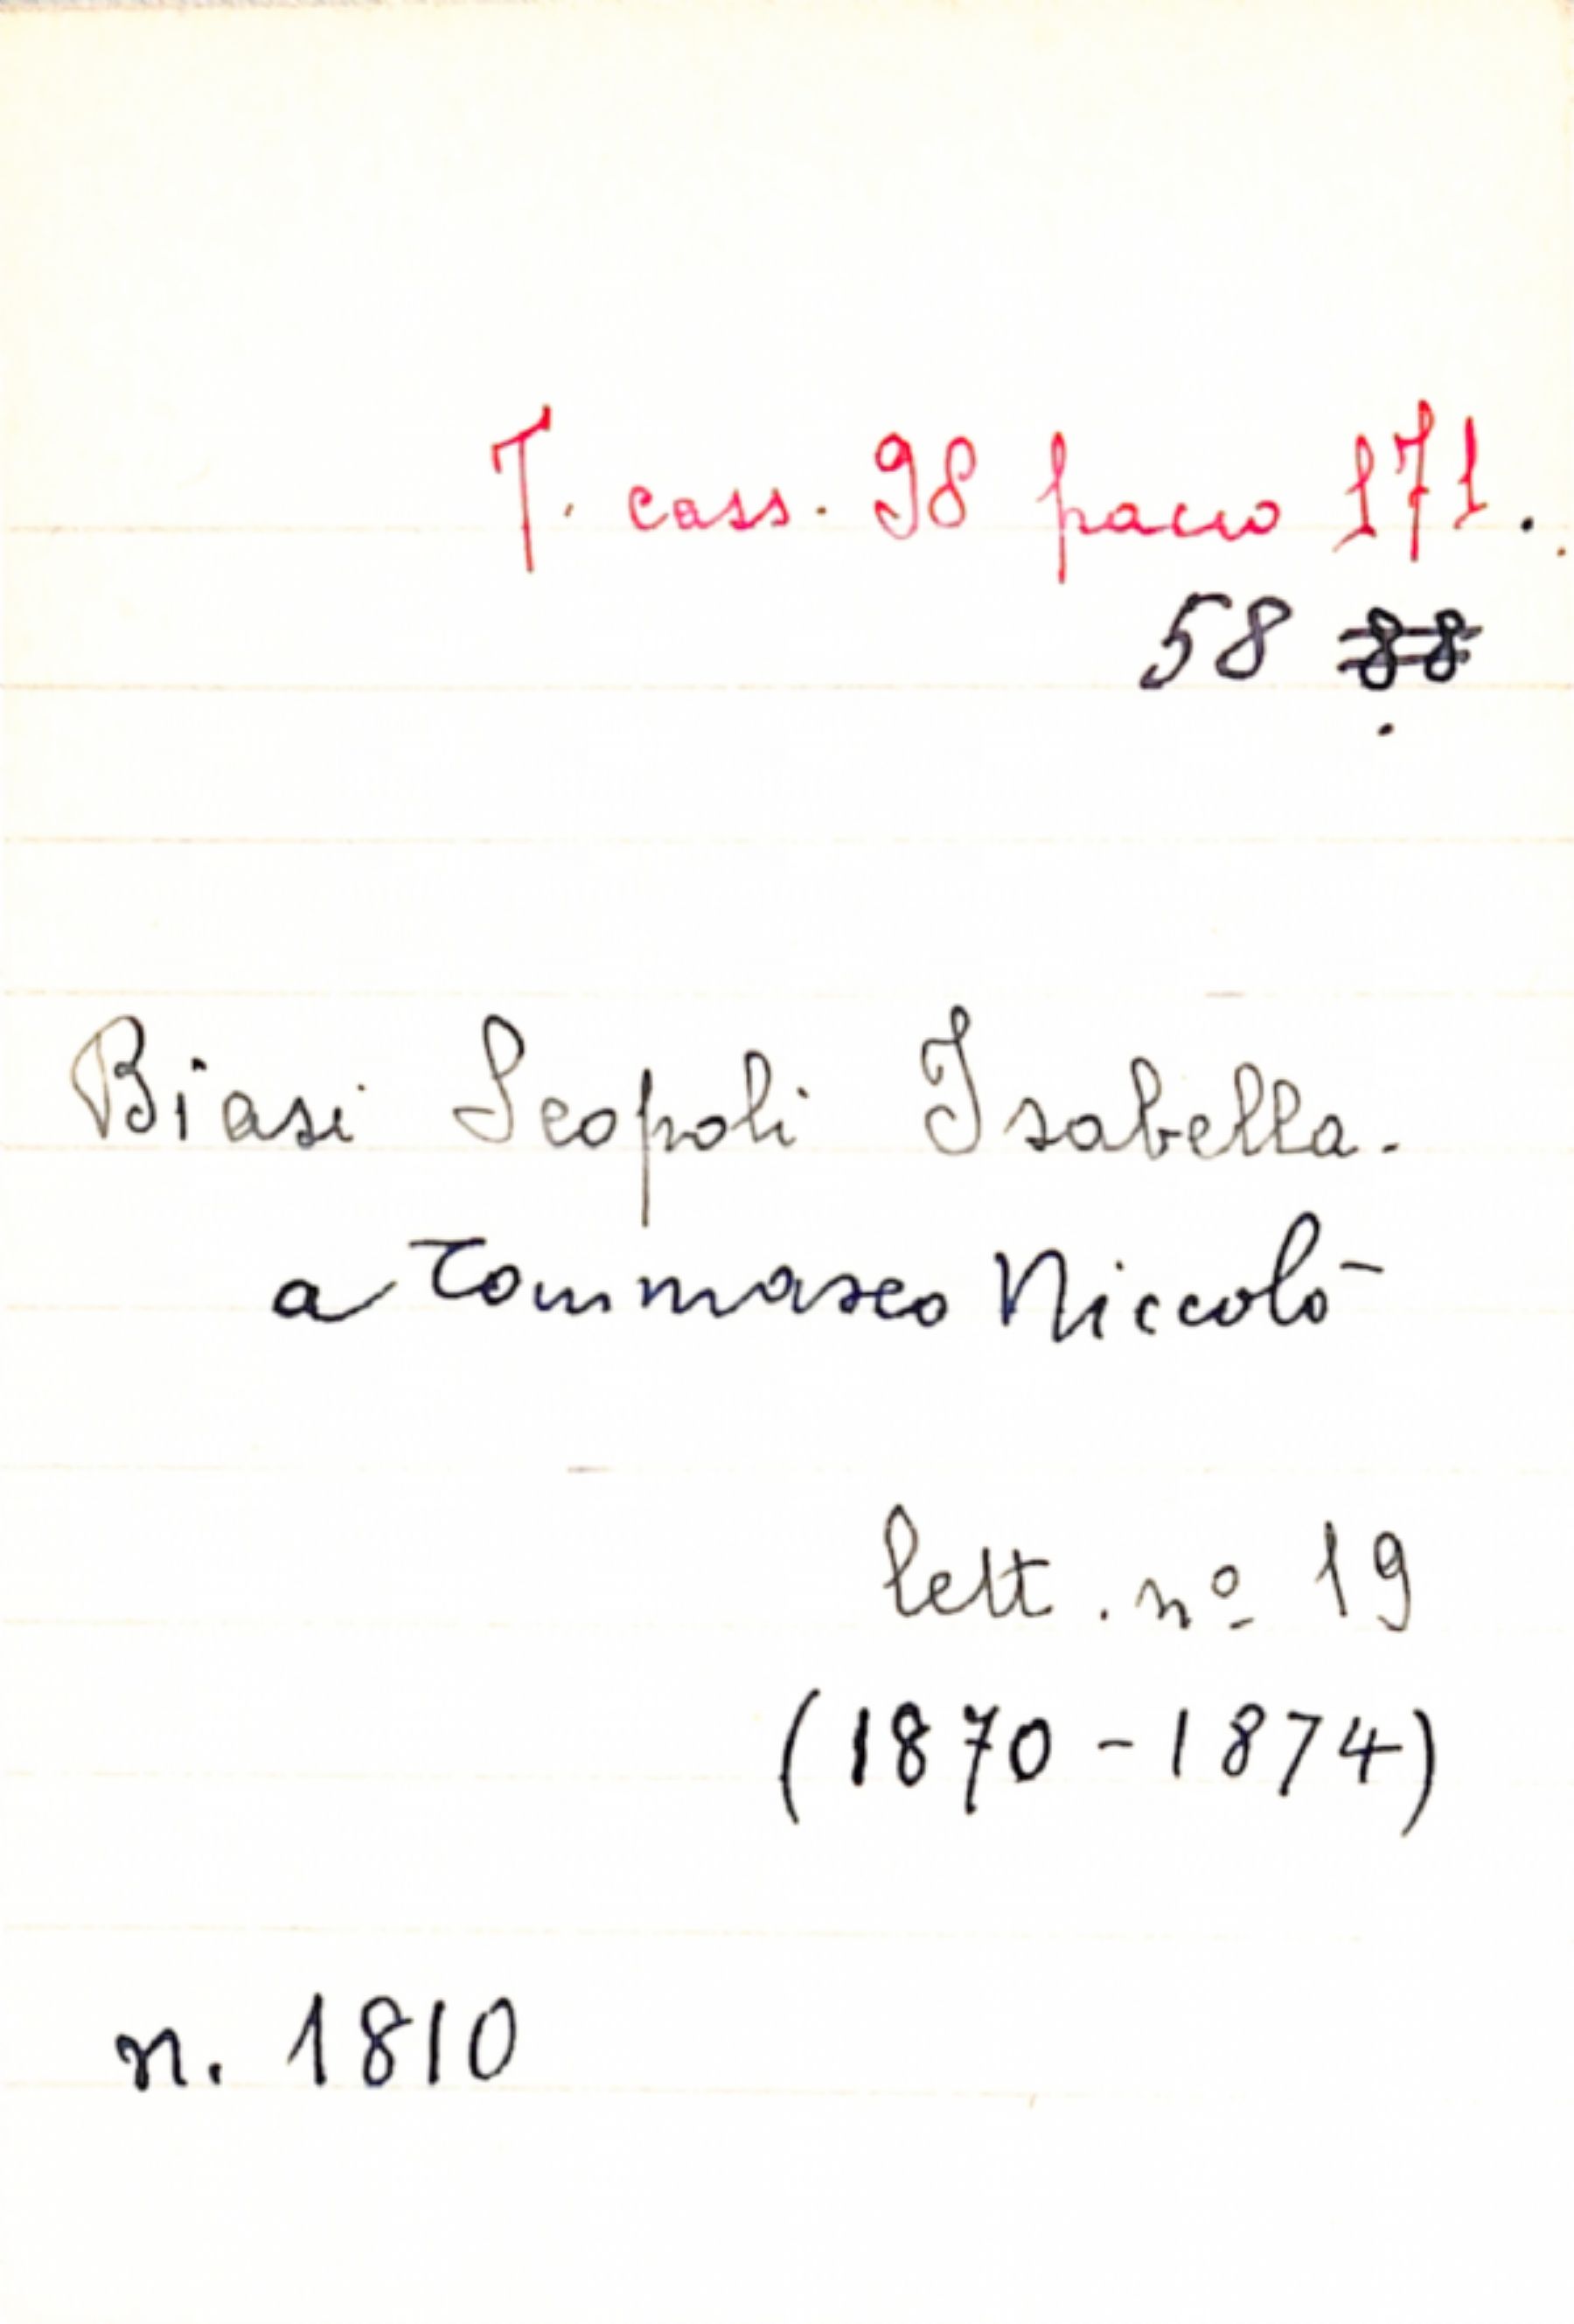 T. cass. 98 pacco 171.
58 88
Biasi Scopoli Isabella.
a Tommaseo Niccolò
lett. nº 19
(1870-1874)
n. 1810